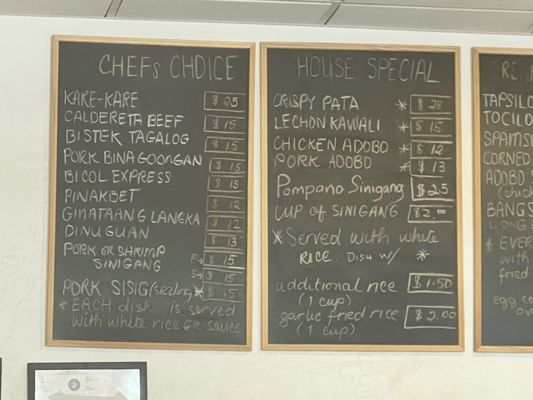 CHEFs CHOICE
KARE-KARE $25
CALDERETA BEEF $15
BISTEK TAGALOG $15
PORK BINAGOONGAN $15
BICOL EXPRESS $15
PINAKBET $12
GINATAANG LANGKA $12
DINUGUAN $13
PORK OR SHRIMP P→ $15
SINIGANG S→ $15
PORK SISIG (sezling)* $15
* EACH dish is served
with white rice OR sauce
HOUSE SPECIAL
CRISPY PATA * $28
LECHON KAWALI * $15
CHICKEN ADOBO * $12
PORK ADOBO * $13
Pompano Sinigang $25
CUP OF SINIGANG $2.00
* Served with white
RICE. DISH W/ *
additional rice $1.50
(1 cup)
garlic fried rice $2.00
(1 cup)
TAPSILO
TOCILO
SPAMSI
CORNED
ADOBO
BANGS
* EVER
with
fried
egg co